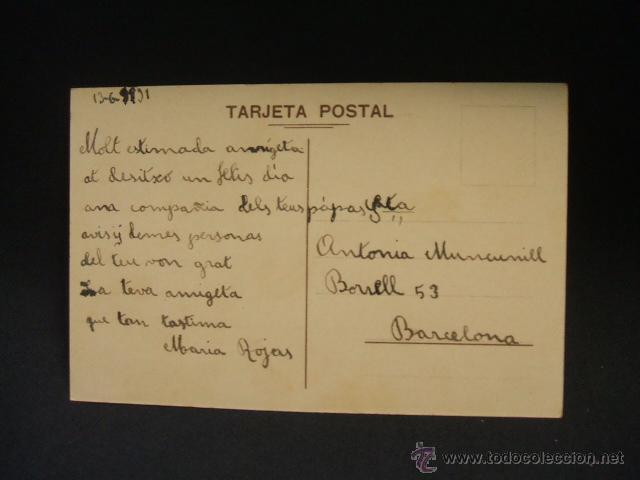 13-6-1931
TARJETA POSTAL
Molt estimada amigeta
at desitxó un felis dia
ana compañia dels teus pápas y
avis y demes personas
del teu von grat
La teva amigeta
que tan tastima
Maria Rojas
Srta
Antonia Muncunill
Borrell 53
Barcelona
© www.todocoleccion.net